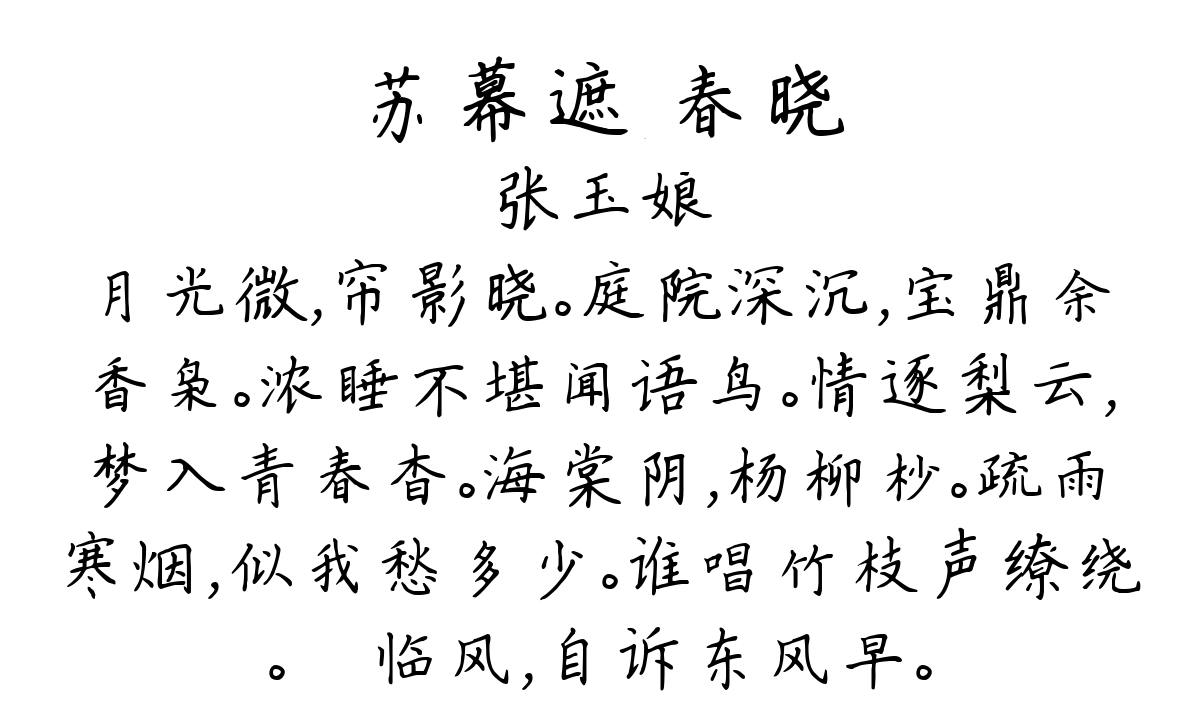 苏幕遮 春晓
张玉娘
月光微,帘影晓。庭院深沉,宝鼎余
香枭。浓睡不堪闻语鸟。情逐梨云,
梦入青春杳。海棠阴,杨柳杪。疏雨
寒烟,似我愁多少。谁唱竹枝声缭绕
。 临风,自诉东风早。